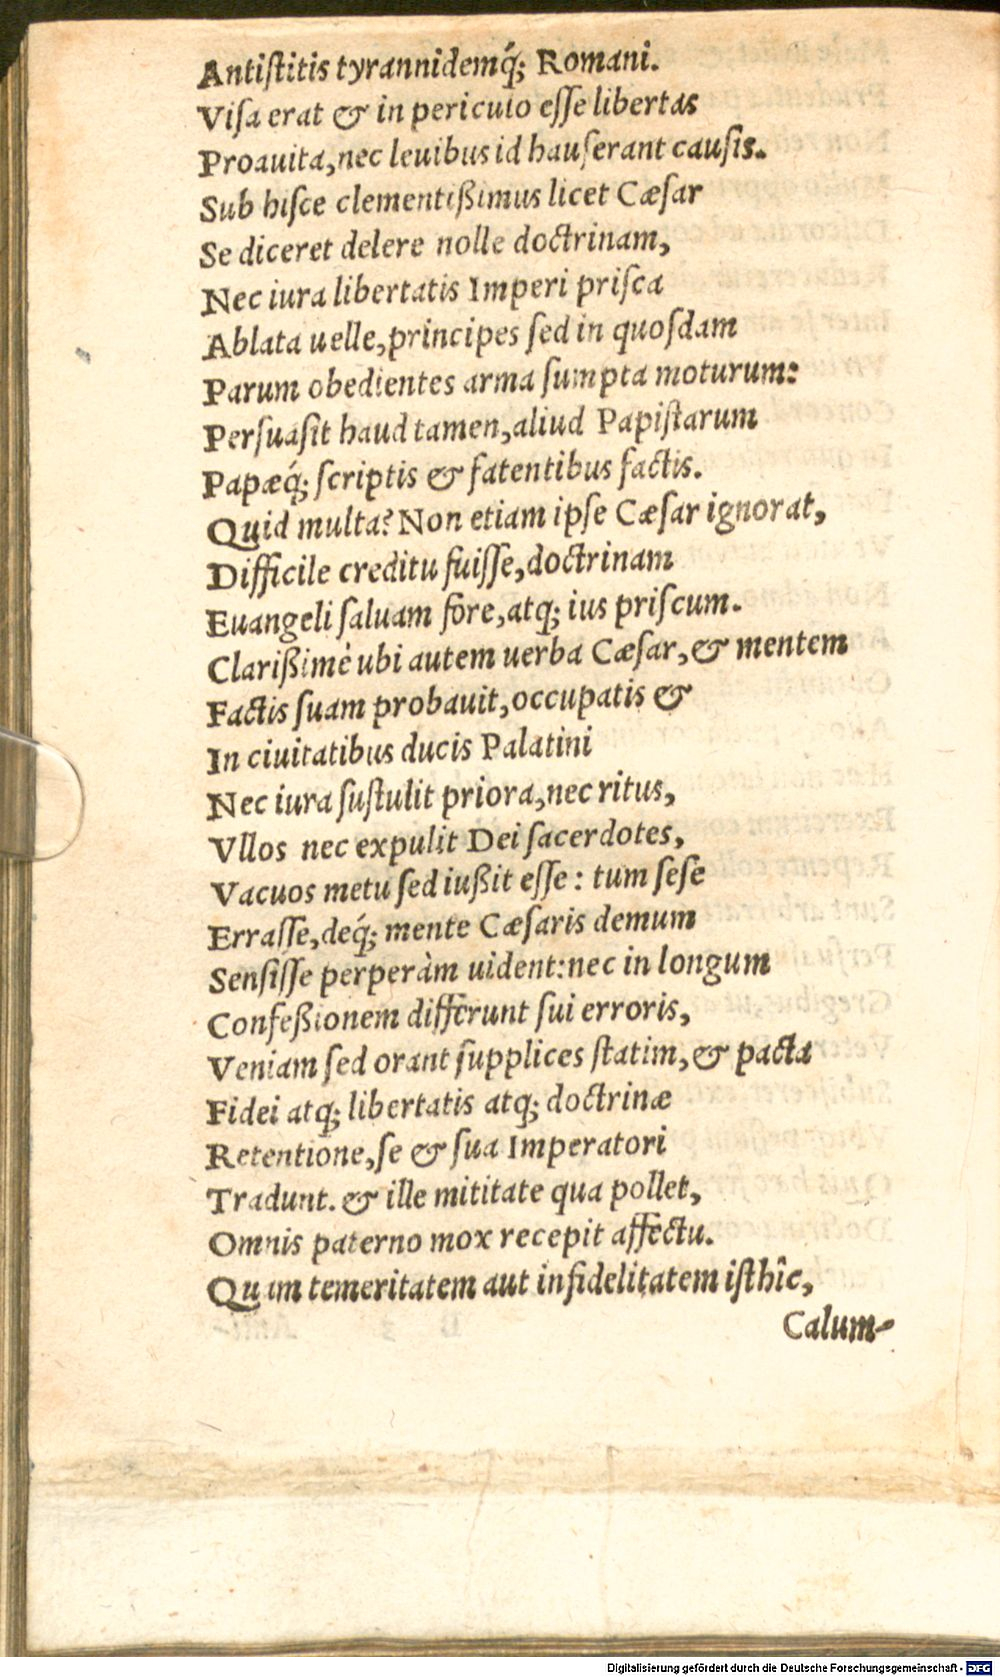 Antiſtitis tyrannidemq́; Romani.
Viſa erat & in periculo eſſe libertas
Proauita, nec leuibus id hauſerant cauſis.
Sub hiſce clementißimus licet Cæſar
Se diceret delere nolle doctrinam,
Nec iura libertatis Imperi priſca
Ablata uelle, principes ſed in quoſdam
Parum obedientes arma ſumpta moturum:
Perſuaſit haud tamen, aliud Papiſtarum
Papæq́; ſcriptis & fatentibus factis.
Quid multa? Non etiam ipſe Cæſar ignorat,
Difficile creditu fuiſſe, doctrinam
Euangeli ſaluam fore, atq; ius priſcum.
Clarißimè ubi autem uerba Cæſar, & mentem
Factis ſuam probauit, occupatis &
In ciuitatibus ducis Palatini
Nec iura ſuſtulit priora, nec ritus,
Vllos nec expulit Dei ſacerdotes,
Vacuos metu ſed iußit eſſe: tum ſeſe
Erraſſe, deq́; mente Cæſaris demum
Senſiſſe perperàm uident: nec in longum
Confeßionem differunt ſui erroris,
Veniam ſed orant ſupplices ſtatim, & pacta
Fidei atq; libertatis atq; doctrinæ
Retentione, ſe & ſua Imperatori
Tradunt. & ille mititate qua pollet,
Omnis paterno mox recepit affectu.
Quam temeritatem aut infidelitatem iſthîc,
Calum-
Digitalisierung gefördert durch die Deutsche Forschungsgemeinschaft - DFG